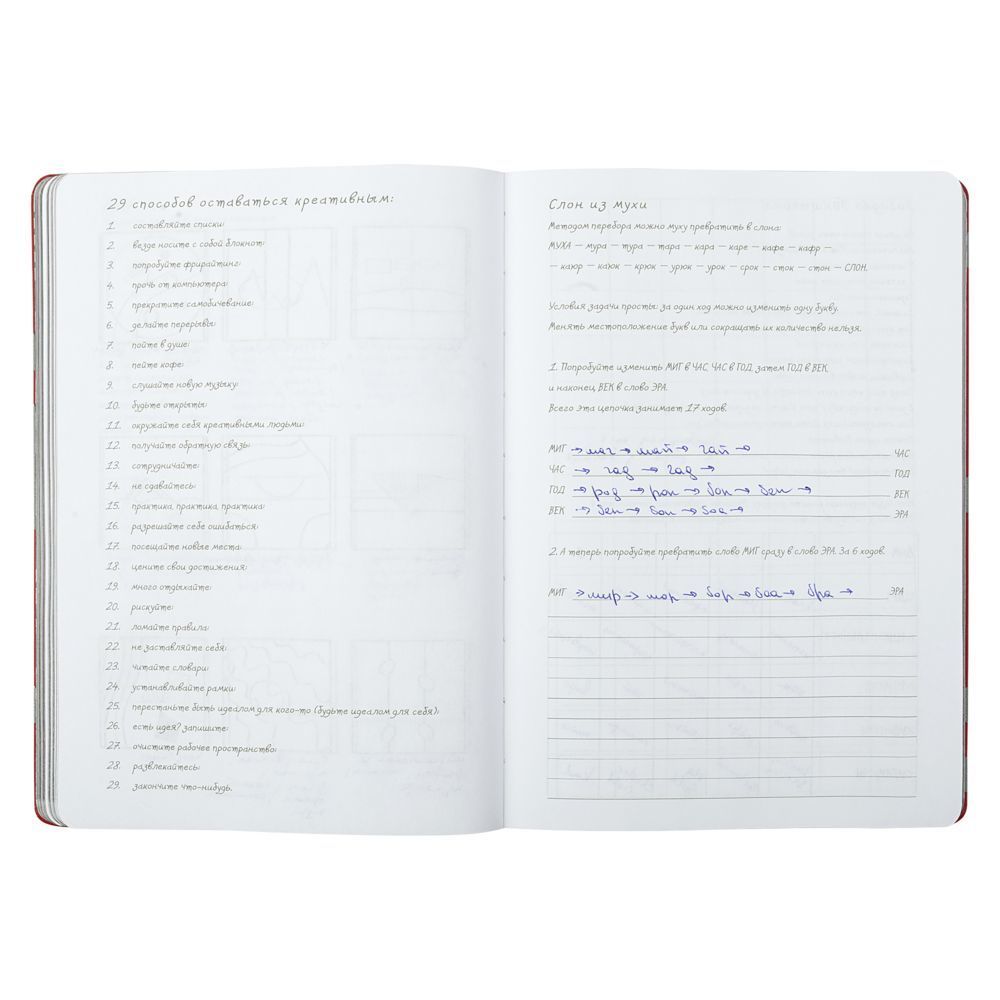 29 способов оставаться креативным:
1. составляйте списки;
2. везде носите с собой блокнот;
3. попробуйте фрирайтинг;
4. прочь от компьютера;
5. прекратите самобичевание;
6. делайте перерывы;
7. пойте в душе;
8. пейте кофе;
9. слушайте новую музыку;
10. будьте открыты;
11. окружайте себя креативными людьми;
12. получайте обратную связь;
13. сотрудничайте;
14. не сдавайтесь;
15. практика, практика, практика;
16. разрешайте себе ошибаться;
17. посещайте новые места;
18. цените свои достижения;
19. много отдыхайте;
20. рискуйте;
21. ломайте правила;
22. не заставляйте себя;
23. читайте словари;
24. устанавливайте рамки;
25. перестаньте быть идеалом для кого-то (будьте идеалом для себя);
26. есть идея? запишите;
27. очистите рабочее пространство;
28. развлекайтесь;
29. закончите что-нибудь.
Слон из мухи
Методом перебора можно муху превратить в слона:
МУХА — мура — тура — тара — кара — каре — кафе — кафр —
— каюр — каюк — крюк — урюк — урок — срок — сток — стон — СЛОН.
Условия задачи просты: за один ход можно изменить одну букву.
Менять местоположение букв или сокращать их количество нельзя.
1. Попробуйте изменить МИГ в ЧАС, ЧАС в ГОД, затем ГОД в ВЕК,
и наконец, ВЕК в слово ЭРА.
Всего эта цепочка занимает 17 ходов.
МИГ → маг → май → чай → ЧАС
ЧАС → чад → гад → ГОД
ГОД → род → рок → бок → бек → ВЕК
ВЕК → бек → бок → боа → ЭРА
2. А теперь попробуйте превратить слово МИГ сразу в слово ЭРА. За 6 ходов.
МИГ → мир → мор → бор → боа → бра → ЭРА